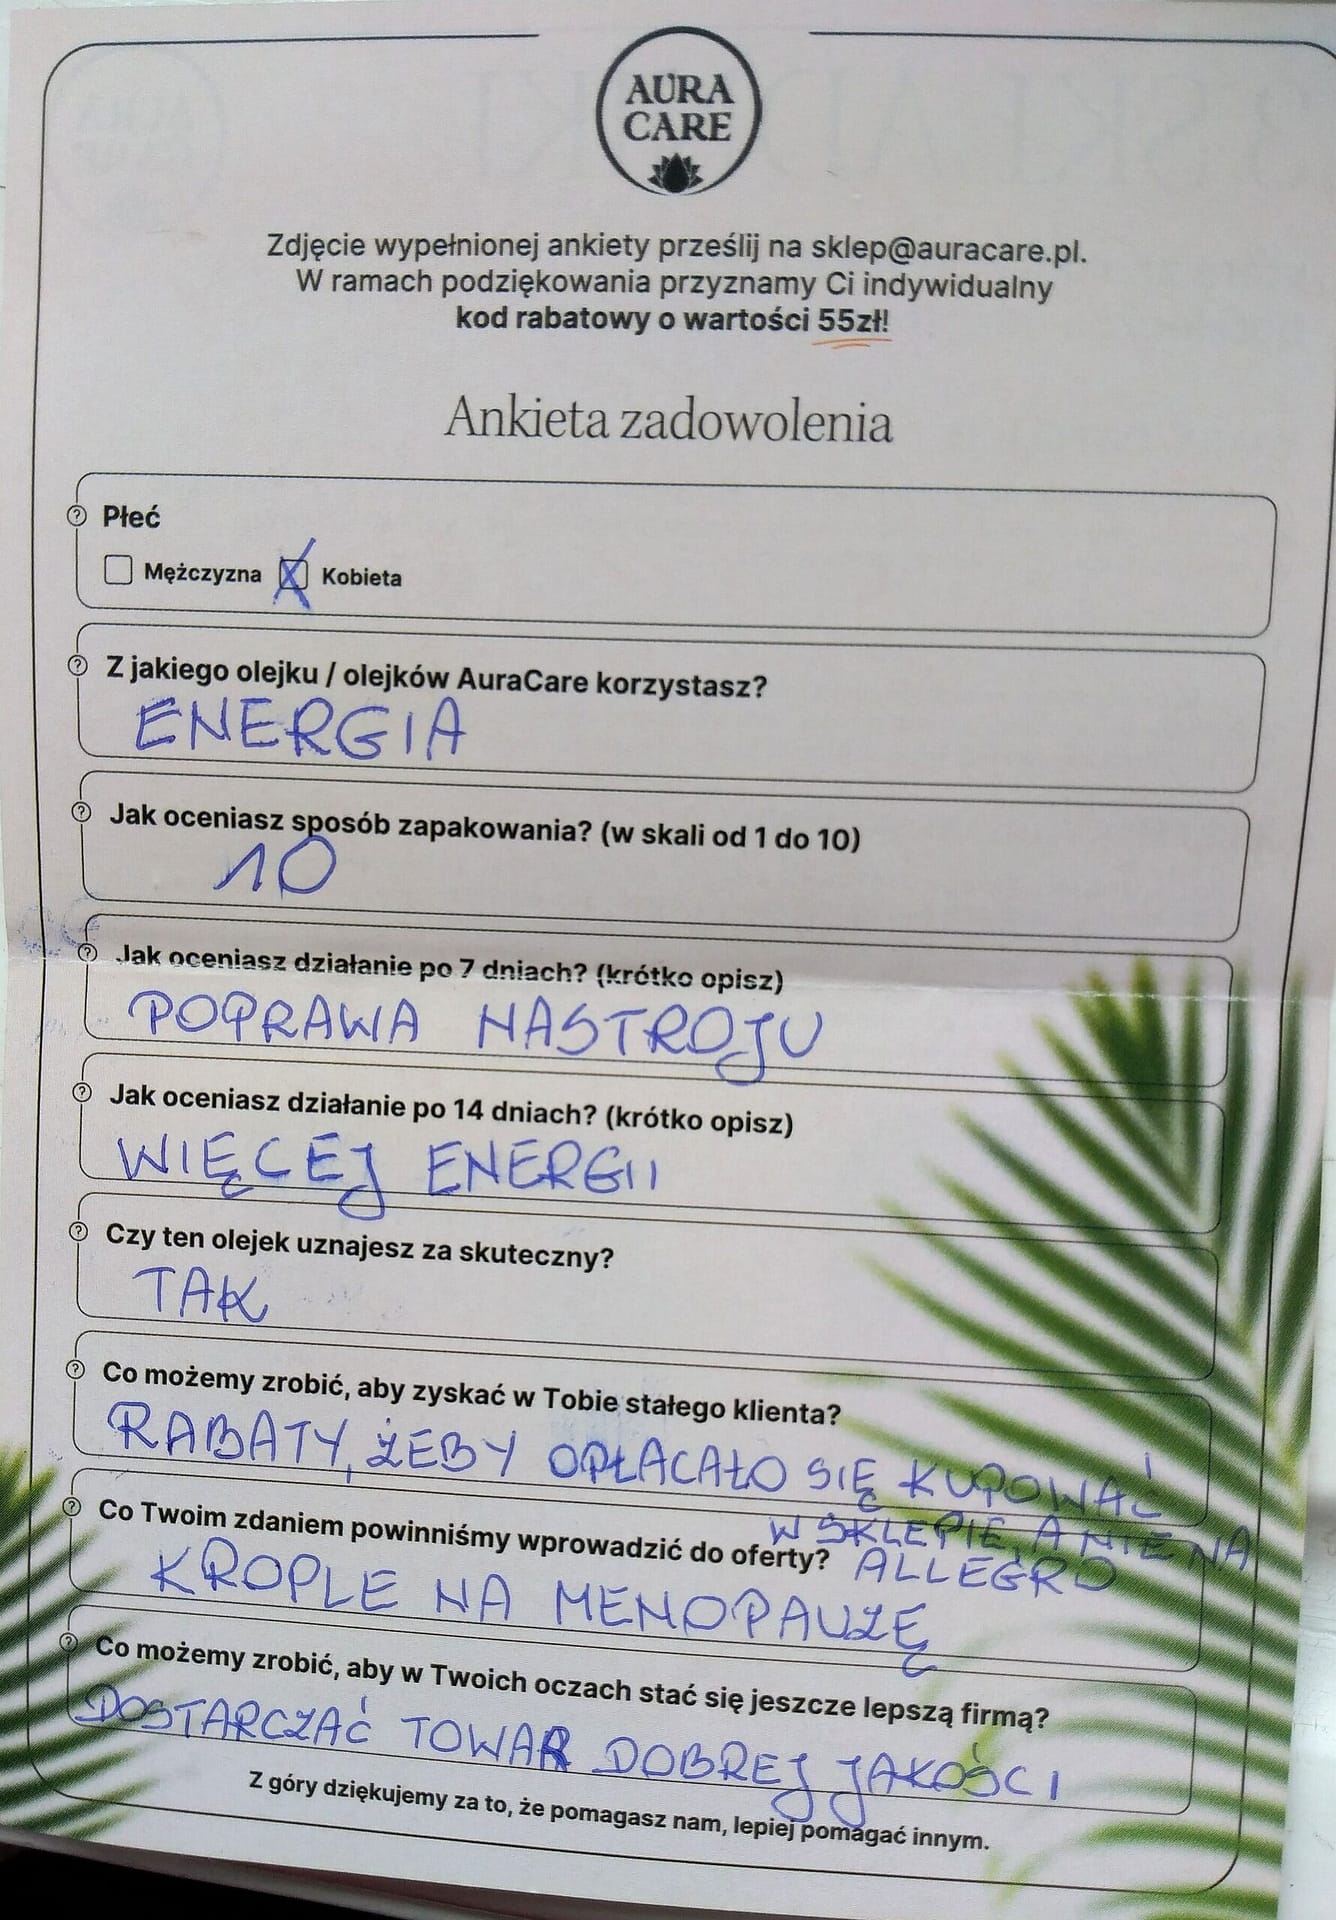 AURA
CARE
Zdjęcie wypełnionej ankiety prześlij na sklep@auracare.pl.
W ramach podziękowania przyznamy Ci indywidualny
kod rabatowy o wartości 55zł!
Ankieta zadowolenia
Płeć
Mężczyzna X Kobieta
Z jakiego olejku / olejków AuraCare korzystasz?
ENERGIA
Jak oceniasz sposób zapakowania? (w skali od 1 do 10)
10
Jak oceniasz działanie po 7 dniach? (krótko opisz)
POPRAWA NASTROJU
Jak oceniasz działanie po 14 dniach? (krótko opisz)
WIĘCEJ ENERGII
Czy ten olejek uznajesz za skuteczny?
TAK
Co możemy zrobić, aby zyskać w Tobie stałego klienta?
RABATY, ŻEBY OPŁACAŁO SIĘ KUPOWAĆ
W SKLEPIE, A NIE NA
ALLEGRO
Co Twoim zdaniem powinniśmy wprowadzić do oferty?
KROPLE NA MENOPAUZĘ
Co możemy zrobić, aby w Twoich oczach stać się jeszcze lepszą firmą?
DOSTARCZAĆ TOWAR DOBREJ JAKOŚCI
Z góry dziękujemy za to, że pomagasz nam, lepiej pomagać innym.